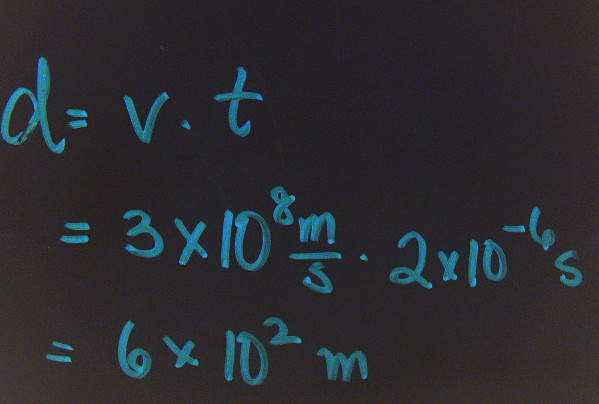 d = v · t
= 3 × 10⁸ m/s · 2 × 10⁻⁶ s
= 6 × 10² m